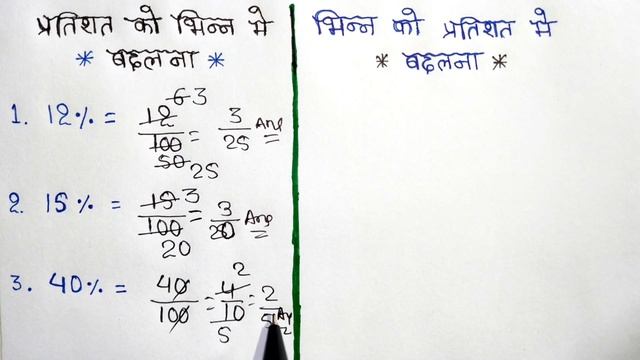 प्रतिशत को भिन्न मे
* बदलना *
1. 12% = 12/100 = 3/25 Ans
6 3
50 25
2. 15% = 15/100 = 3/20 Ans
3
20
3. 40% = 40/100 = 4/10 = 2/5
2
5
भिन्न को प्रतिशत मे
* बदलना *